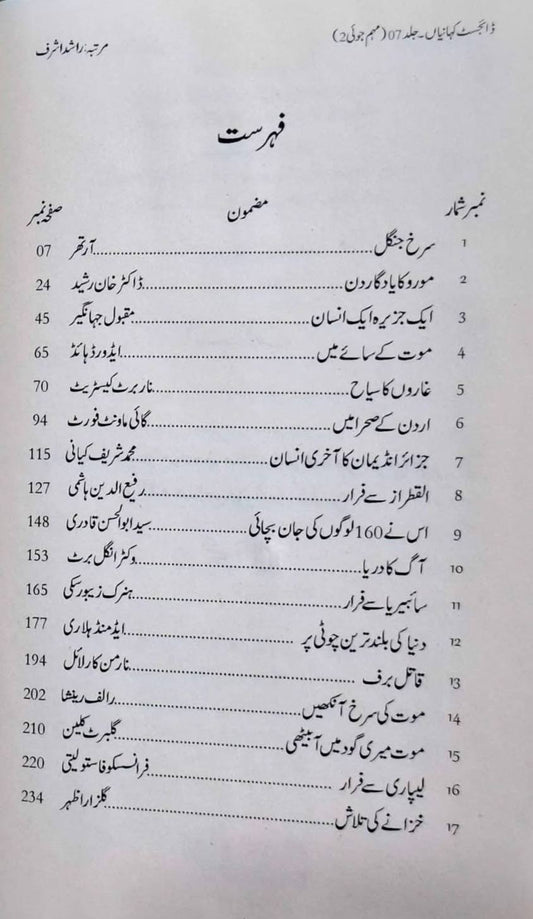 ڈائجسٹ کہانیاں۔ جلد 07 (مہم جوئی 2) مرتبہ: راشد اشرف
فہرست
نمبر شمار مضمون صفحہ نمبر
1 سرخ جنگل..........آرتھر 07
2 مورو کا یادگار دن..........ڈاکٹر خان رشید 24
3 ایک جزیرہ ایک انسان..........مقبول جہانگیر 45
4 موت کے سائے میں..........ایڈورڈ ہائڈ 65
5 غاروں کا سیاح..........ناربرٹ کیسٹریٹ 70
6 اردن کے صحرا میں..........گائی ماونٹ فورٹ 94
7 جزائر انڈیمان کا آخری انسان..........محمد شریف کیانی 115
8 القطراز سے فرار..........رفیع الدین ہاشمی 127
9 اس نے 160 لوگوں کی جان بچائی..........سید ابوالحسن قادری 148
10 آگ کا دریا..........وکٹر انگل برٹ 153
11 سائبیریا سے فرار..........ہنرک زیبورسکی 165
12 دنیا کی بلند ترین چوٹی پر..........ایڈمنڈ ہلاری 177
13 قاتل برف..........نارمن کارلائل 194
14 موت کی سرخ آنکھیں..........رالف رینشا 202
15 موت میری گود میں آ بیٹھی..........گلبرٹ کلین 210
16 لیپاری سے فرار..........فرانسسکو فاستولیتی 220
17 خزانے کی تلاش..........گلزار اظہر 234